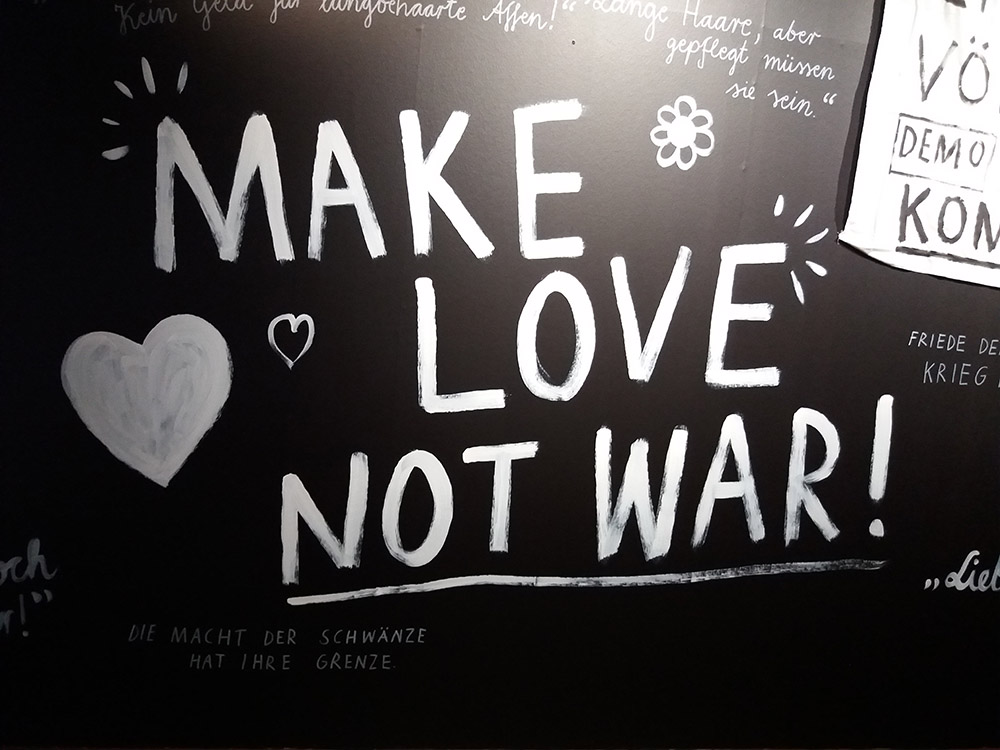 Kein Geld für langbehaarte Affen!“
„Lange Haare, aber
gepflegt müssen
sie sein.“
VÖ
DEMO
KON
MAKE
LOVE
NOT WAR!
FRIEDE DE
KRIEG
och
„Lieb
DIE MACHT DER SCHWÄNZE
HAT IHRE GRENZE.